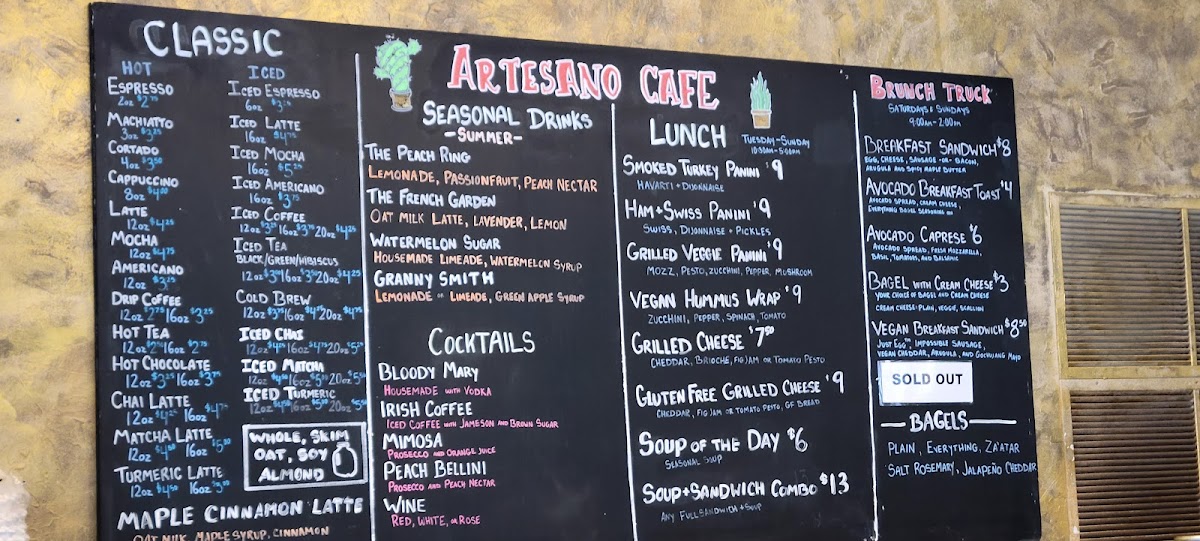 CLASSIC
HOT
ESPRESSO
2oz $2.75
MACHIATTO
3oz $3.25
CORTADO
4oz $3.50
CAPPUCCINO
8oz $4.00
LATTE
12oz $4.25
MOCHA
12oz $4.75
AMERICANO
12oz $3.25
DRIP COFFEE
12oz $2.75 16oz $3.25
HOT TEA
12oz 16oz $2.75
HOT CHOCOLATE
12oz $3.25 16oz $3.75
CHAI LATTE
12oz $4.25 16oz $4.75
MATCHA LATTE
12oz $4.50 16oz $5.00
TURMERIC LATTE
12oz $4.50 16oz
MAPLE CINNAMON LATTE
OAT MILK, MAPLE SYRUP, CINNAMON
ICED
ICED ESPRESSO
6oz
ICED LATTE
16oz $4.75
ICED MOCHA
16oz $5.25
ICED AMERICANO
16oz $3.75
ICED COFFEE
12oz $3.25 16oz $3.75 20oz $4.25
ICED TEA
BLACK/GREEN/HIBISCUS
12oz 16oz 20oz $4.25
COLD BREW
12oz $3.75 16oz $4.25 20oz $4.75
ICED CHAI
12oz $4.25 16oz $4.75 20oz
ICED MATCHA
12oz $4.50 16oz 20oz
ICED TURMERIC
12oz $4.50 16oz 20oz
WHOLE, SKIM
OAT, SOY
ALMOND
ARTESANO CAFE
SEASONAL DRINKS
-SUMMER-
THE PEACH RING
LEMONADE, PASSIONFRUIT, PEACH NECTAR
THE FRENCH GARDEN
OAT MILK LATTE, LAVENDER, LEMON
WATERMELON SUGAR
HOUSEMADE LIMEADE, WATERMELON SYRUP
GRANNY SMITH
LEMONADE OR LIMEADE, GREEN APPLE SYRUP
COCKTAILS
BLOODY MARY
HOUSEMADE WITH VODKA
IRISH COFFEE
ICED COFFEE WITH JAMESON AND BROWN SUGAR
MIMOSA
PROSECCO AND ORANGE JUICE
PEACH BELLINI
PROSECCO AND PEACH NECTAR
WINE
RED, WHITE, OR ROSE
LUNCH
TUESDAY-SUNDAY
10:30AM-5:00PM
SMOKED TURKEY PANINI $9
HAVARTI + DIJONNAISE
HAM+SWISS PANINI $9
SWISS, DIJONNAISE + PICKLES
GRILLED VEGGIE PANINI $9
MOZZ, PESTO, ZUCCHINI, PEPPER, MUSHROOM
VEGAN HUMMUS WRAP $9
ZUCCHINI, PEPPER, SPINACH, TOMATO
GRILLED CHEESE $7.50
CHEDDAR, BRIOCHE, FIG JAM OR TOMATO PESTO
GLUTEN FREE GRILLED CHEESE $9
CHEDDAR, FIG JAM OR TOMATO PESTO, GF BREAD
SOUP OF THE DAY $6
SEASONAL SOUP
SOUP+SANDWICH COMBO $13
ANY FULL SANDWICH + SOUP
BRUNCH TRUCK
SATURDAYS & SUNDAYS
9:00AM-2:00PM
BREAKFAST SANDWICH $8
EGG, CHEESE, SAUSAGE -OR- BACON,
ARUGULA AND SPICY MAPLE BUTTER
AVOCADO BREAKFAST TOAST $4
AVOCADO SPREAD, CREAM CHEESE,
EVERYTHING BAGEL SEASONING
AVOCADO CAPRESE $6
AVOCADO SPREAD, FRESH MOZZARELLA,
BASIL, TOMATOES, AND BALSAMIC
BAGEL WITH CREAM CHEESE $3
YOUR CHOICE OF BAGEL AND CREAM CHEESE
CREAM CHEESE: PLAIN, VEGGIE, SCALLION
VEGAN BREAKFAST SANDWICH $8.50
JUST EGG™, IMPOSSIBLE SAUSAGE,
VEGAN CHEDDAR, ARUGULA, AND GOCHUJANG MAYO
SOLD OUT
-BAGELS-
PLAIN, EVERYTHING, ZA'ATAR
SALT ROSEMARY, JALAPEÑO CHEDDAR